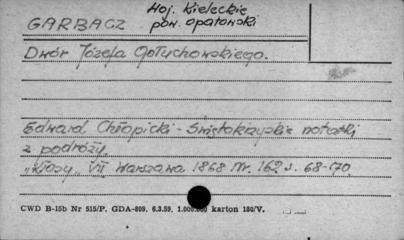 Woj. Kieleckie
GARBACZ pow. opatowski
Dwór Józefa Gołuchowskiego.
Edward Chłopicki - Świętokrzyskie notatki
z podróży.
„Kłosy" VII Warszawa 1868 Nr. 162 s. 68-170
CWD B-15b Nr 515/P. GDA-809. 6.3.59. 1.000.000 karton 180/V.